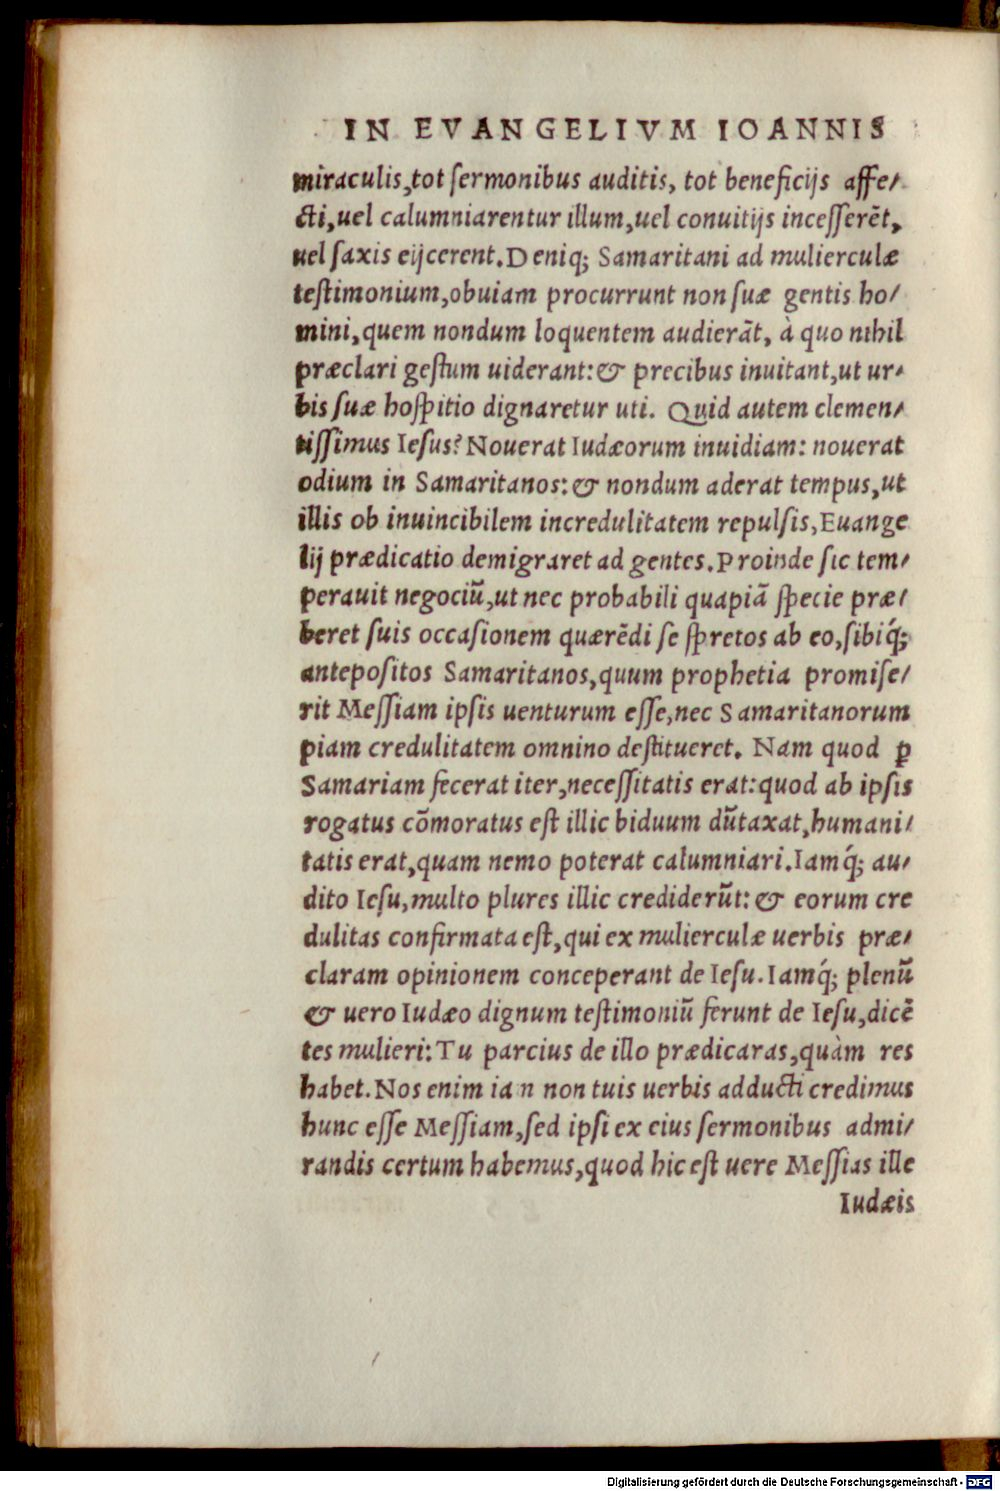 IN EVANGELIVM IOANNIS
miraculis,tot sermonibus auditis, tot beneficijs affe/
cti,uel calumniarentur illum,uel conuitijs incesserēt,
uel saxis eijcerent.Deniq; Samaritani ad mulierculæ
testimonium,obuiam procurrunt non suæ gentis ho/
mini,quem nondum loquentem audierāt, à quo nihil
præclari gestum uiderant:& precibus inuitant,ut ur/
bis suæ hospitio dignaretur uti. Quid autem clemen/
tissimus Iesus? Nouerat Iudæorum inuidiam: nouerat
odium in Samaritanos:& nondum aderat tempus,ut
illis ob inuincibilem incredulitatem repulsis,Euange
lij prædicatio demigraret ad gentes.Proinde sic tem/
perauit negociū,ut nec probabili quapiā specie præ/
beret suis occasionem quærēdi se spretos ab eo,sibiq́;
antepositos Samaritanos,quum prophetia promise/
rit Messiam ipsis uenturum esse,nec Samaritanorum
piam credulitatem omnino destitueret. Nam quod ꝑ
Samariam fecerat iter,necessitatis erat:quod ab ipsis
rogatus cōmoratus est illic biduum dūtaxat,humani/
tatis erat,quam nemo poterat calumniari.Iamq́; au/
dito Iesu,multo plures illic crediderūt:& eorum cre
dulitas confirmata est,qui ex mulierculæ uerbis præ/
claram opinionem conceperant de Iesu.Iamq́; plenū
& uero Iudæo dignum testimoniū ferunt de Iesu,dicē
tes mulieri:Tu parcius de illo prædicaras,quàm res
habet.Nos enim iam non tuis uerbis adducti credimus
hunc esse Messiam,sed ipsi ex eius sermonibus admi/
randis certum habemus,quod hic est uere Messias ille
Iudæis
Digitalisierung gefördert durch die Deutsche Forschungsgemeinschaft - DFG